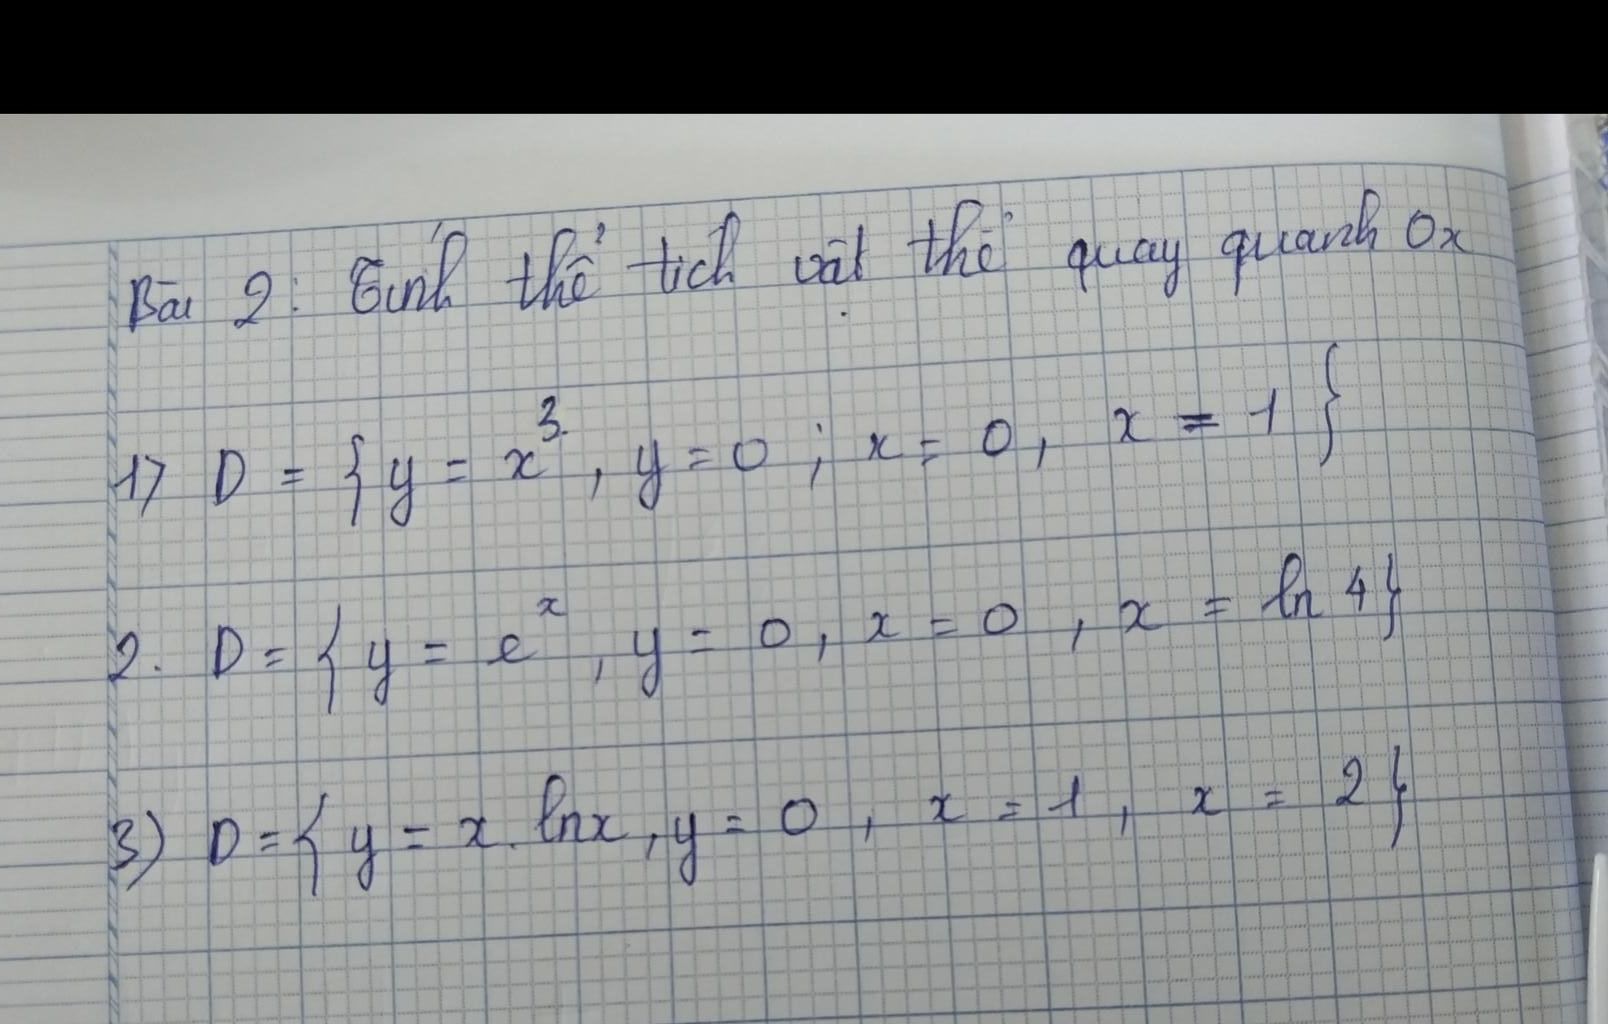 Bài 2: Tính thể tích vật thể quay quanh Ox
1) D = { y = x³, y = 0 ; x = 0, x = 1 }
2. D = { y = eˣ, y = 0, x = 0, x = ln 4 }
3) D = { y = x. lnx, y = 0, x = 1, x = 2 }